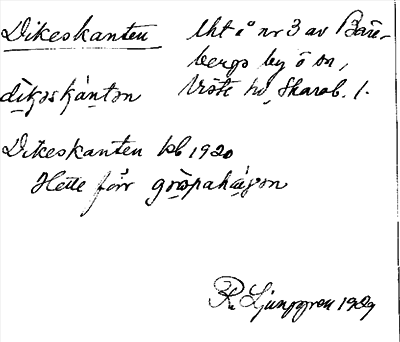 Dikeskanten
lht å nr 3 av Bare-
bergs by ö on,
Viste hd, Skarab. l.
dìkəskántən
Dikeskanten kb 1920
Hette förr
R. Ljunggren 1929